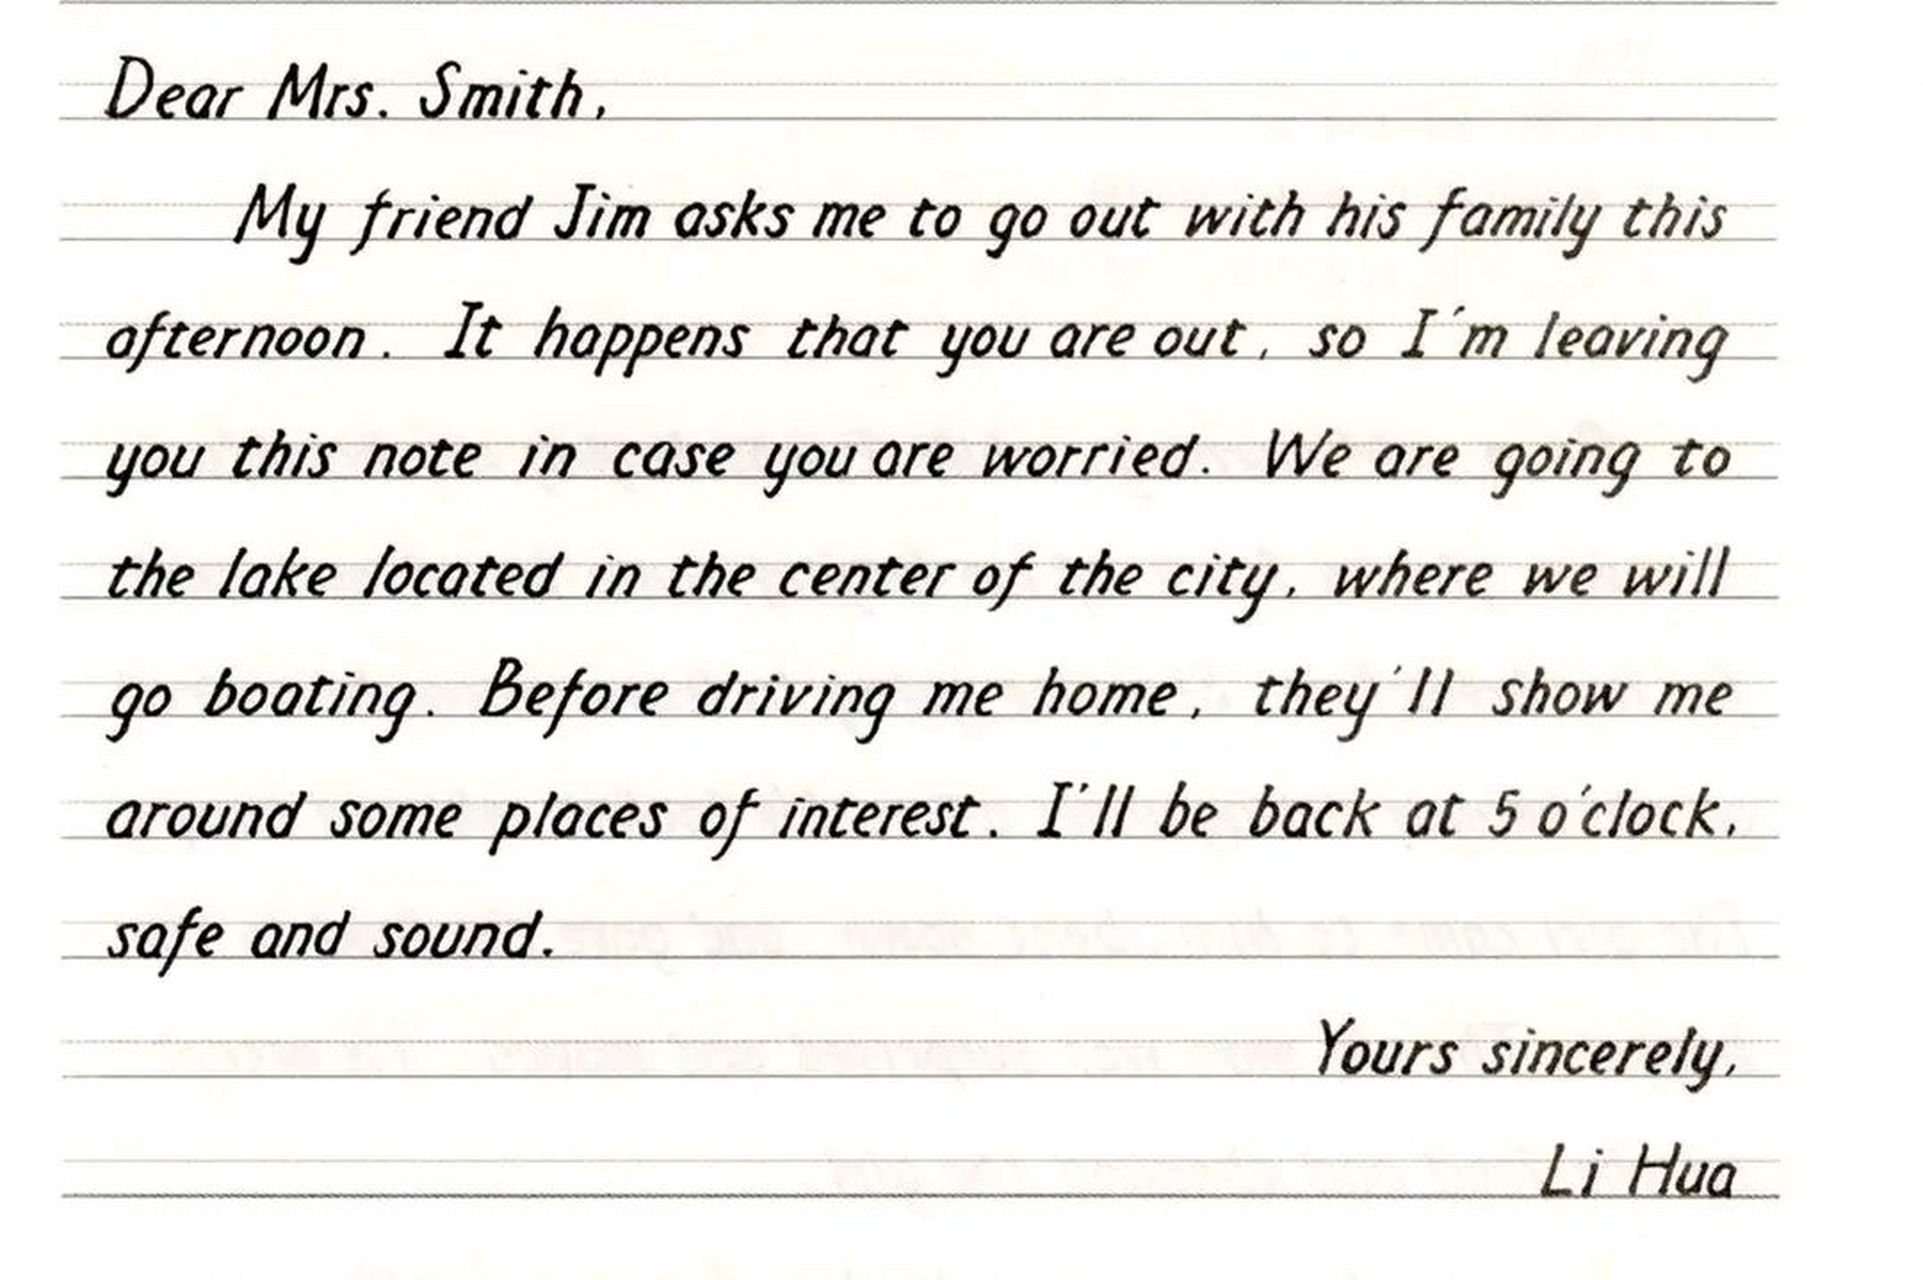 Dear Mrs. Smith,
My friend Jim asks me to go out with his family this
afternoon. It happens that you are out, so I'm leaving
you this note in case you are worried. We are going to
the lake located in the center of the city, where we will
go boating. Before driving me home, they'll show me
around some places of interest. I'll be back at 5 o'clock,
safe and sound.
Yours sincerely,
Li Hua